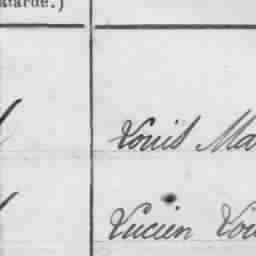 atarde.)
Louis Ma
Lucien Lou